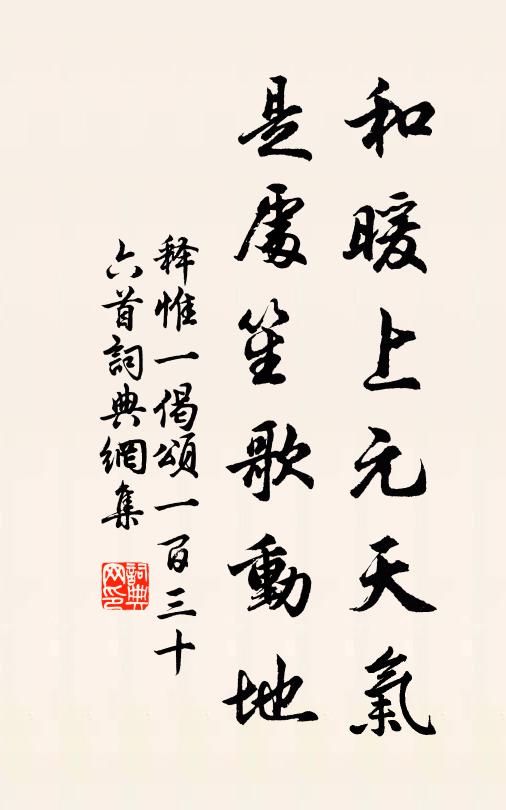 和暖上元天氣
是處笙歌動地
释惟一偈頌一百三十
六首詞典網集
詞典网印